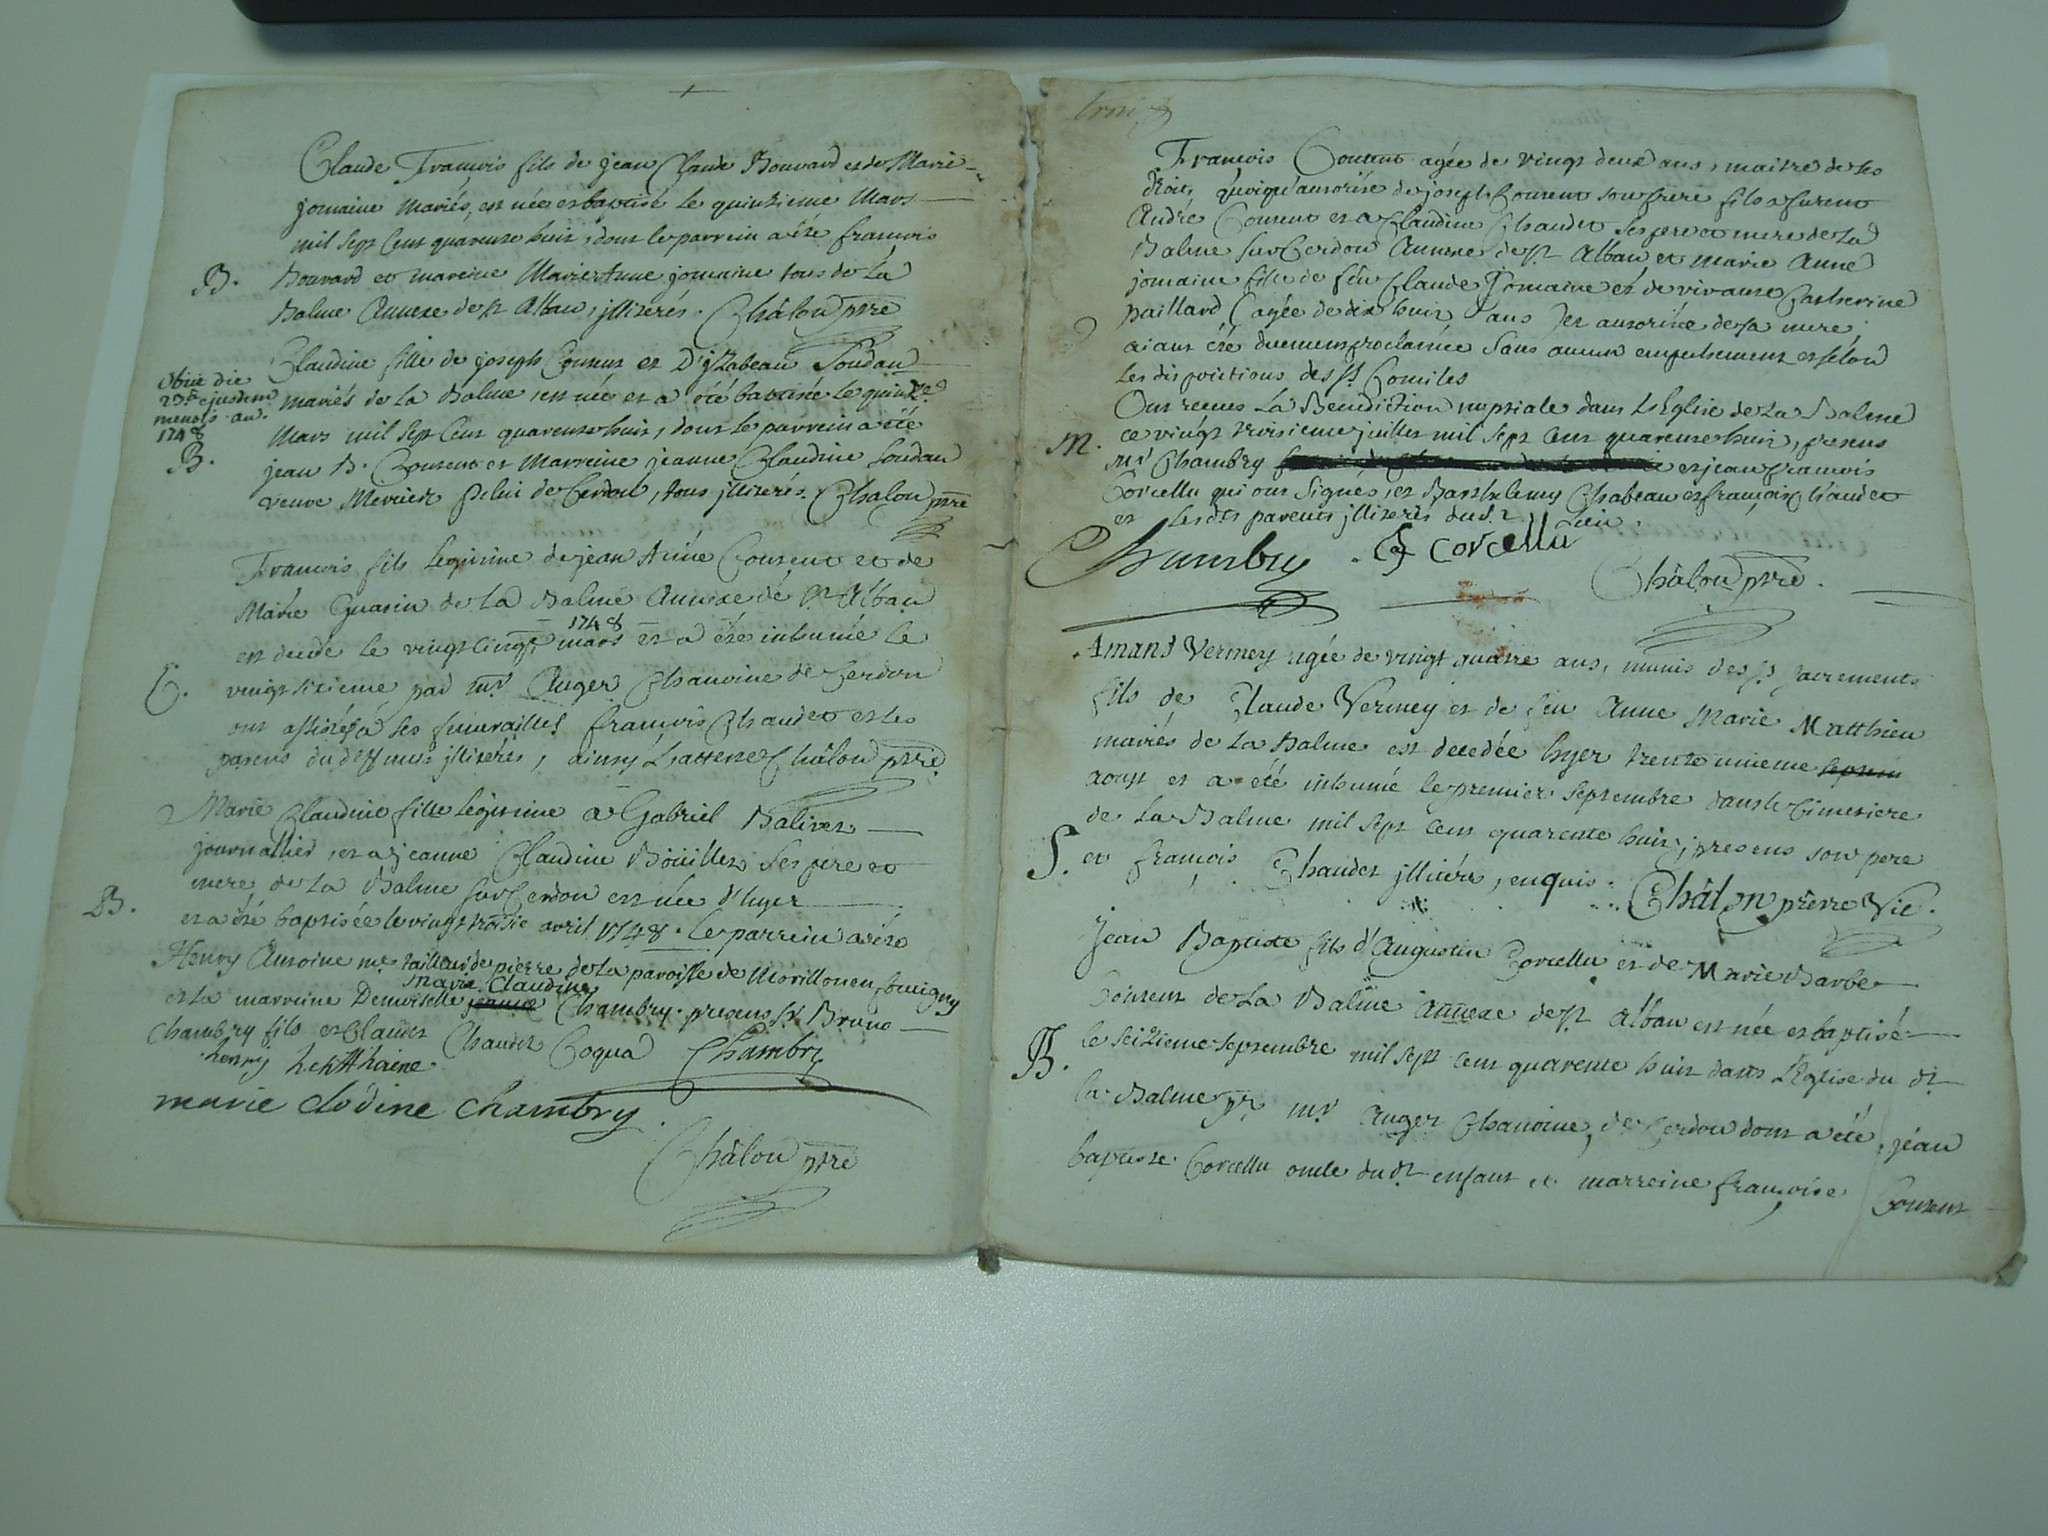 Claude Francois fils de jean Claude Bouvard et de Marie
jomaine mariés, est née et baptisé le quinzieme Mars
mil sept cent quarente huit, dont le parrein a été francois
B. Bouvard et mareine Marie Anne jomaine tous de la
Balme Annexe de st Alban, illiterés. Châlon ptre
Claudine fille de joseph Couturt et D'izabeau Soudan
obiit die
23a ejusdem
mensis an.
1748
mariés de la Balme, est née et a été batisée le quinze
Mars mil sept cent quarente huit, dont le parrein a été
B. jean B. Couturt et Marreine jeanne Claudine Soudan
veuve Mercier de Cerdon, tous illiterés. Châlon ptre
Francois fils legitime de jean Aimé Couturt et de
Marie Guarin de la Balme Annexe de st Alban
1748
est decede le vingt cinq mars et a été inhumée le
E. vingt sixieme par mr Auger Chanoine de Cerdon
ont assistés à ses funerailles francois Chaudet et les
parens du deffunct illiterés, ainsy l'atteste Châlon ptre
Marie Claudine fille legitime a Gabriel Balivet
journallier, et a jeanne Claudine Boüillet ses pere et
mere de la Balme sur Cerdon est née d'hyer
B. et a été baptisée le vingt avril 1748. Le parrein a été
Henry Antoine me tailleur de pierre de la paroisse de Morillon en foucigny
marie Claudine
et la marreine Demoiselle jeanne Chambry. presens sr Bruno
Chambry fils et Claude Chaudet Coqua Chambry
henry
marie clodine chambry.
Châlon ptre
Francois Couturt agée de vingt deux ans, maitre de ses
droits, quoiqu'autorisé de joseph Couturt son frere fils a furent
André Couturt et a Claudine Chaudet ses pere et mere de la
Balme sur Cerdon Annexe de st Alban et marie Anne
jomaine fille de feu Claude Jomaine et de vivante Catherine
paillard (agée de dix huit ans) et autorisée de sa mere
aiant été duement proclamée sans aucun empechement et selon
les dispositions des st Conciles
Ont recues la Benediction nuptiale dans L'Eglise de la Balme
M. ce vingt troisieme juillet mil sept cent quarente huit, presens
mr Chambry et jean francois
Corcellu qui ont signés, et Barthelemy Chabeau et françois Chaudet
et les dts parents illiterés dud. lieu.
Chambry. Corcellu
Châlon ptre.
Amand Vermey agée de vingt quatre ans, munis des st sacrements
fils de Claude Vermey et de feu Anne Marie Matthieu
mariés de la Balme est decedée hyer trente unieme
aoust et a été inhumé le premier septembre dans le cimetiere
de la Balme mil sept cent quarente huit, presens son pere
S. et françois Chaudet illitéré, enquis. Châlon prêtre Vic.
Jean Baptiste fils d'Augustin Corcellu et de Marie Barbe
Couturt de la Balme annexe de st alban est née et baptisé
B. le seizieme septembre mil sept cent quarente huit dans L'Eglise du dt
la Balme pr mr Auger Chanoine de Cerdon dont a été, jean
baptiste Corcellu oncle du dt enfant et marreine françoise Couturt